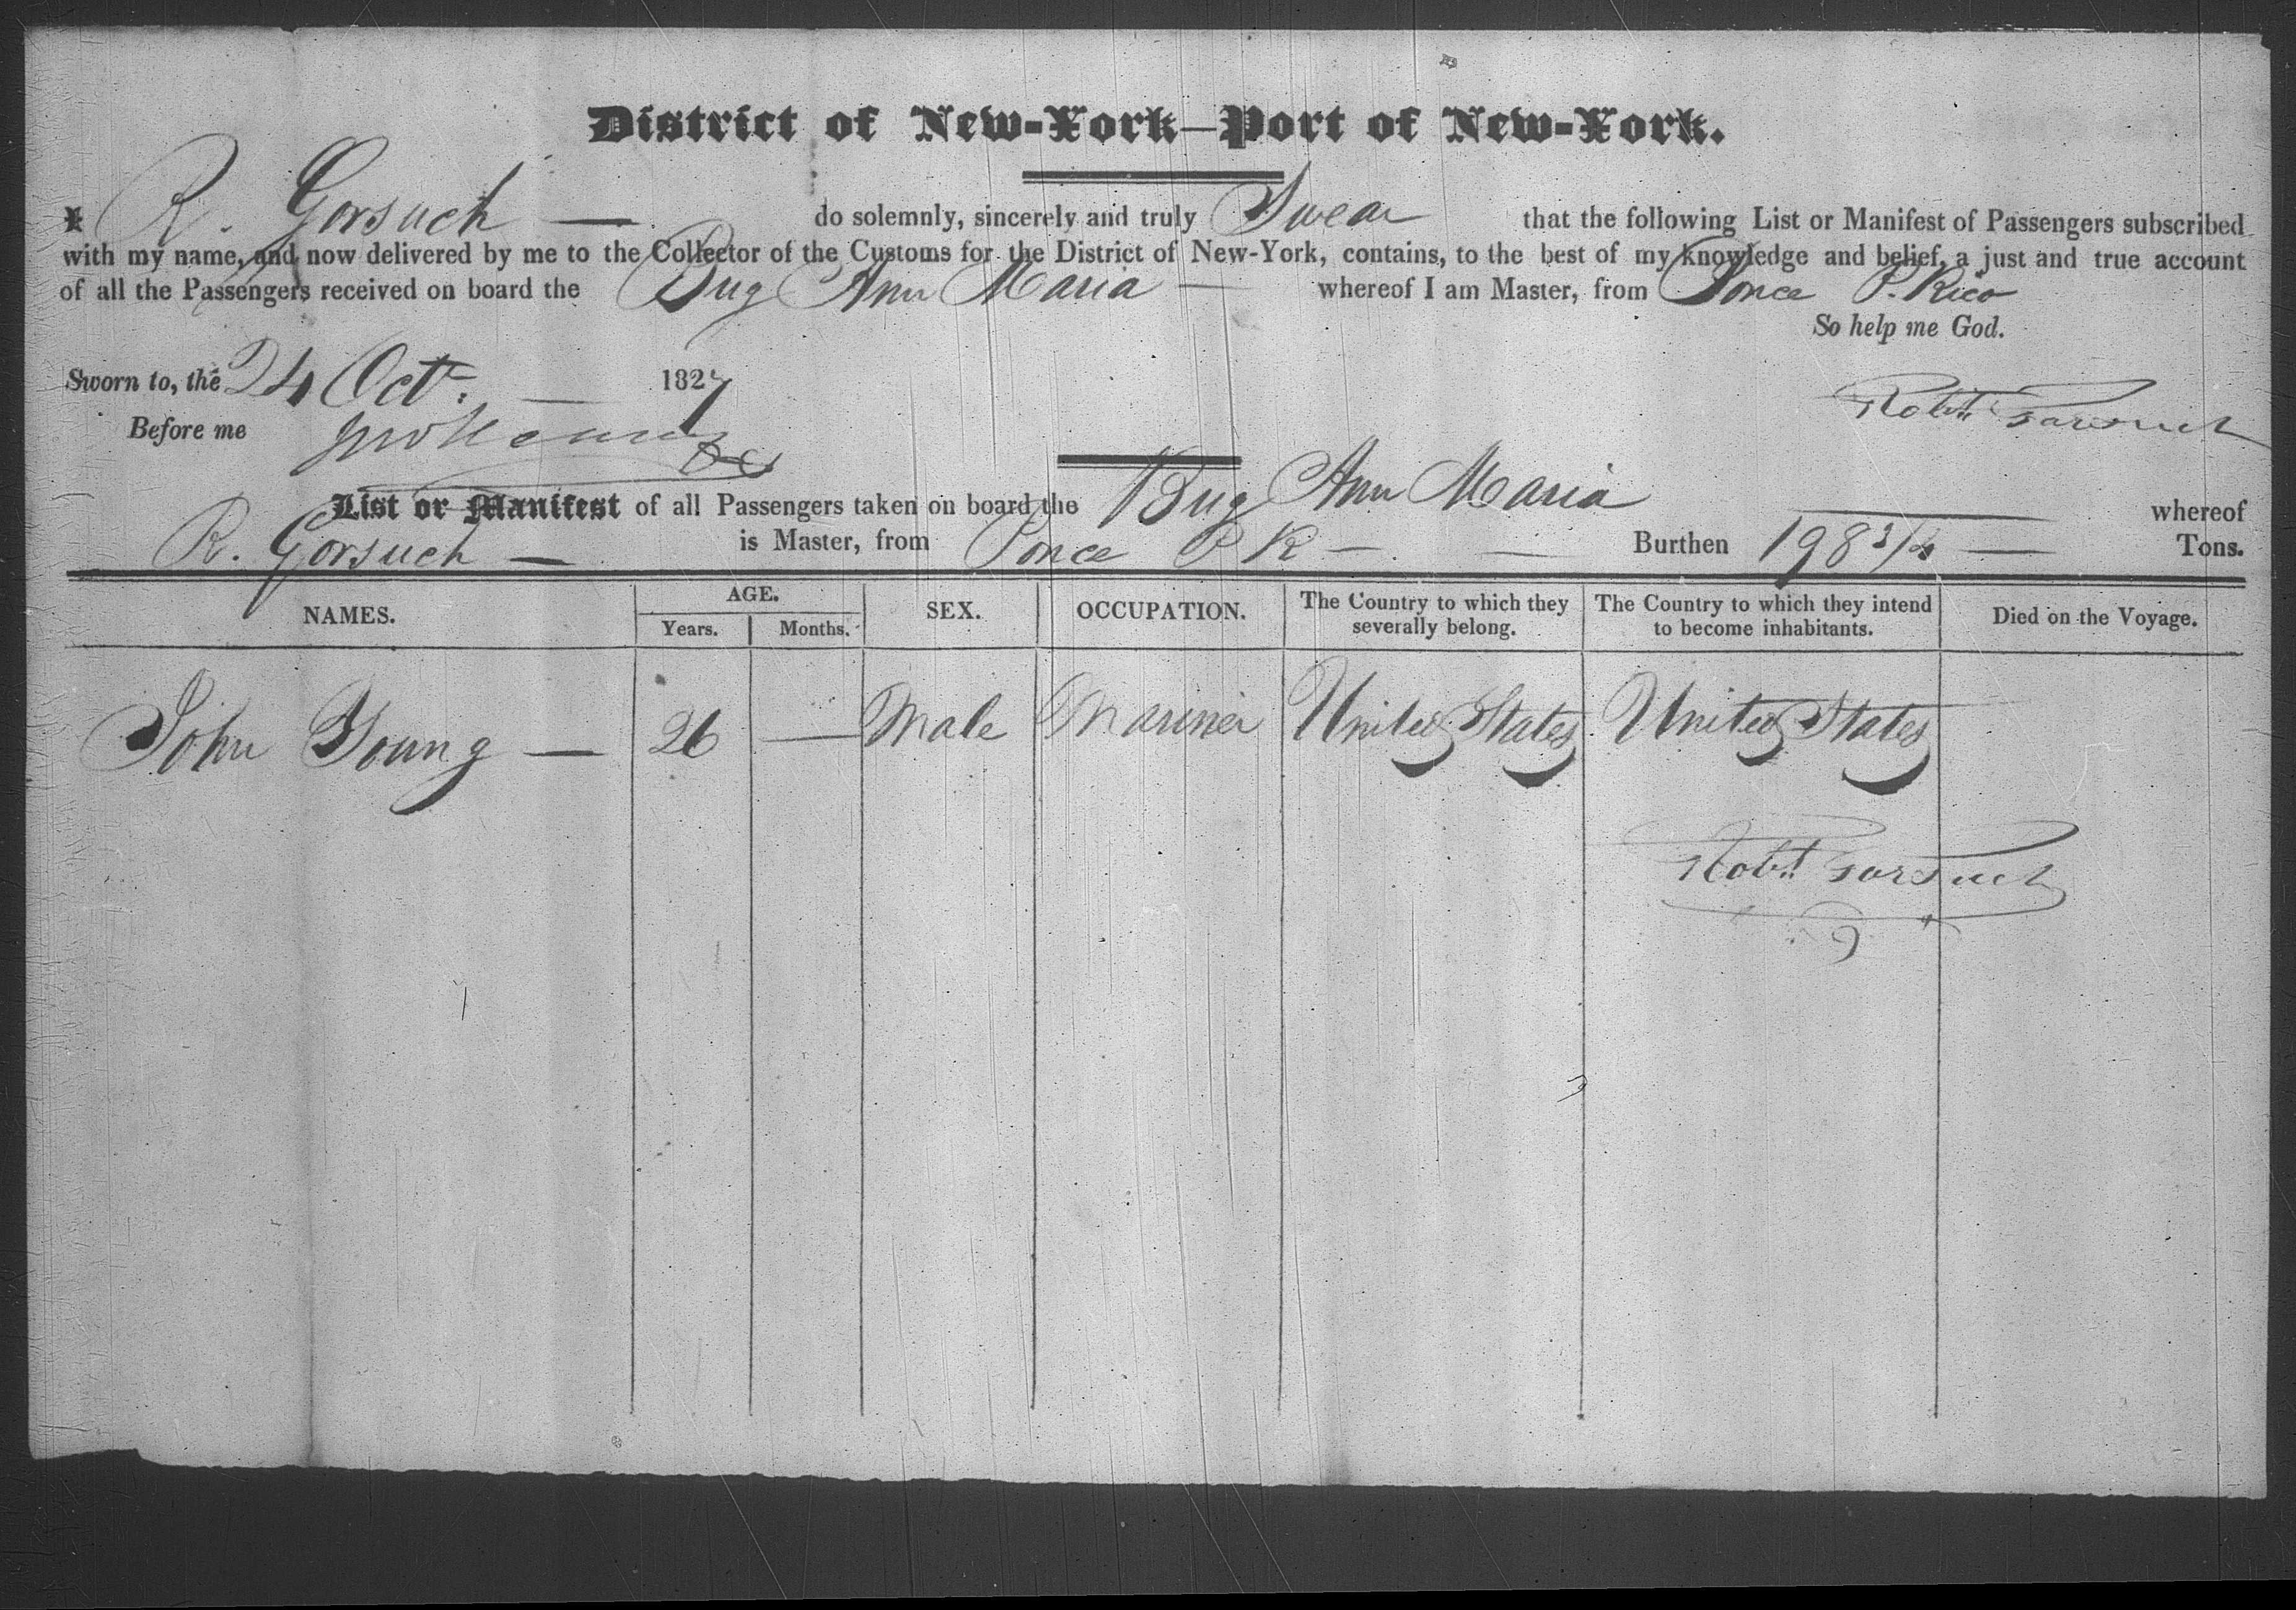 District of New-York—Port of New-York.
I R. Gorsuch — do solemnly, sincerely and truly Swear that the following List or Manifest of Passengers subscribed
with my name, and now delivered by me to the Collector of the Customs for the District of New-York, contains, to the best of my knowledge and belief, a just and true account
of all the Passengers received on board the Brig Ann Maria — whereof I am Master, from Ponce P. Rico
So help me God.
Sworn to, the 24 Oct. — 1827
Before me
Robt. Gorsuch
List or Manifest of all Passengers taken on board the Brig Ann Maria — whereof
R. Gorsuch — is Master, from Ponce P R — — Burthen 198 3/4 — Tons.
NAMES. AGE. SEX. OCCUPATION. The Country to which they severally belong. The Country to which they intend to become inhabitants. Died on the Voyage.
Years. Months.
John Young — 26 — Male Mariner United States United States
Robt. Gorsuch